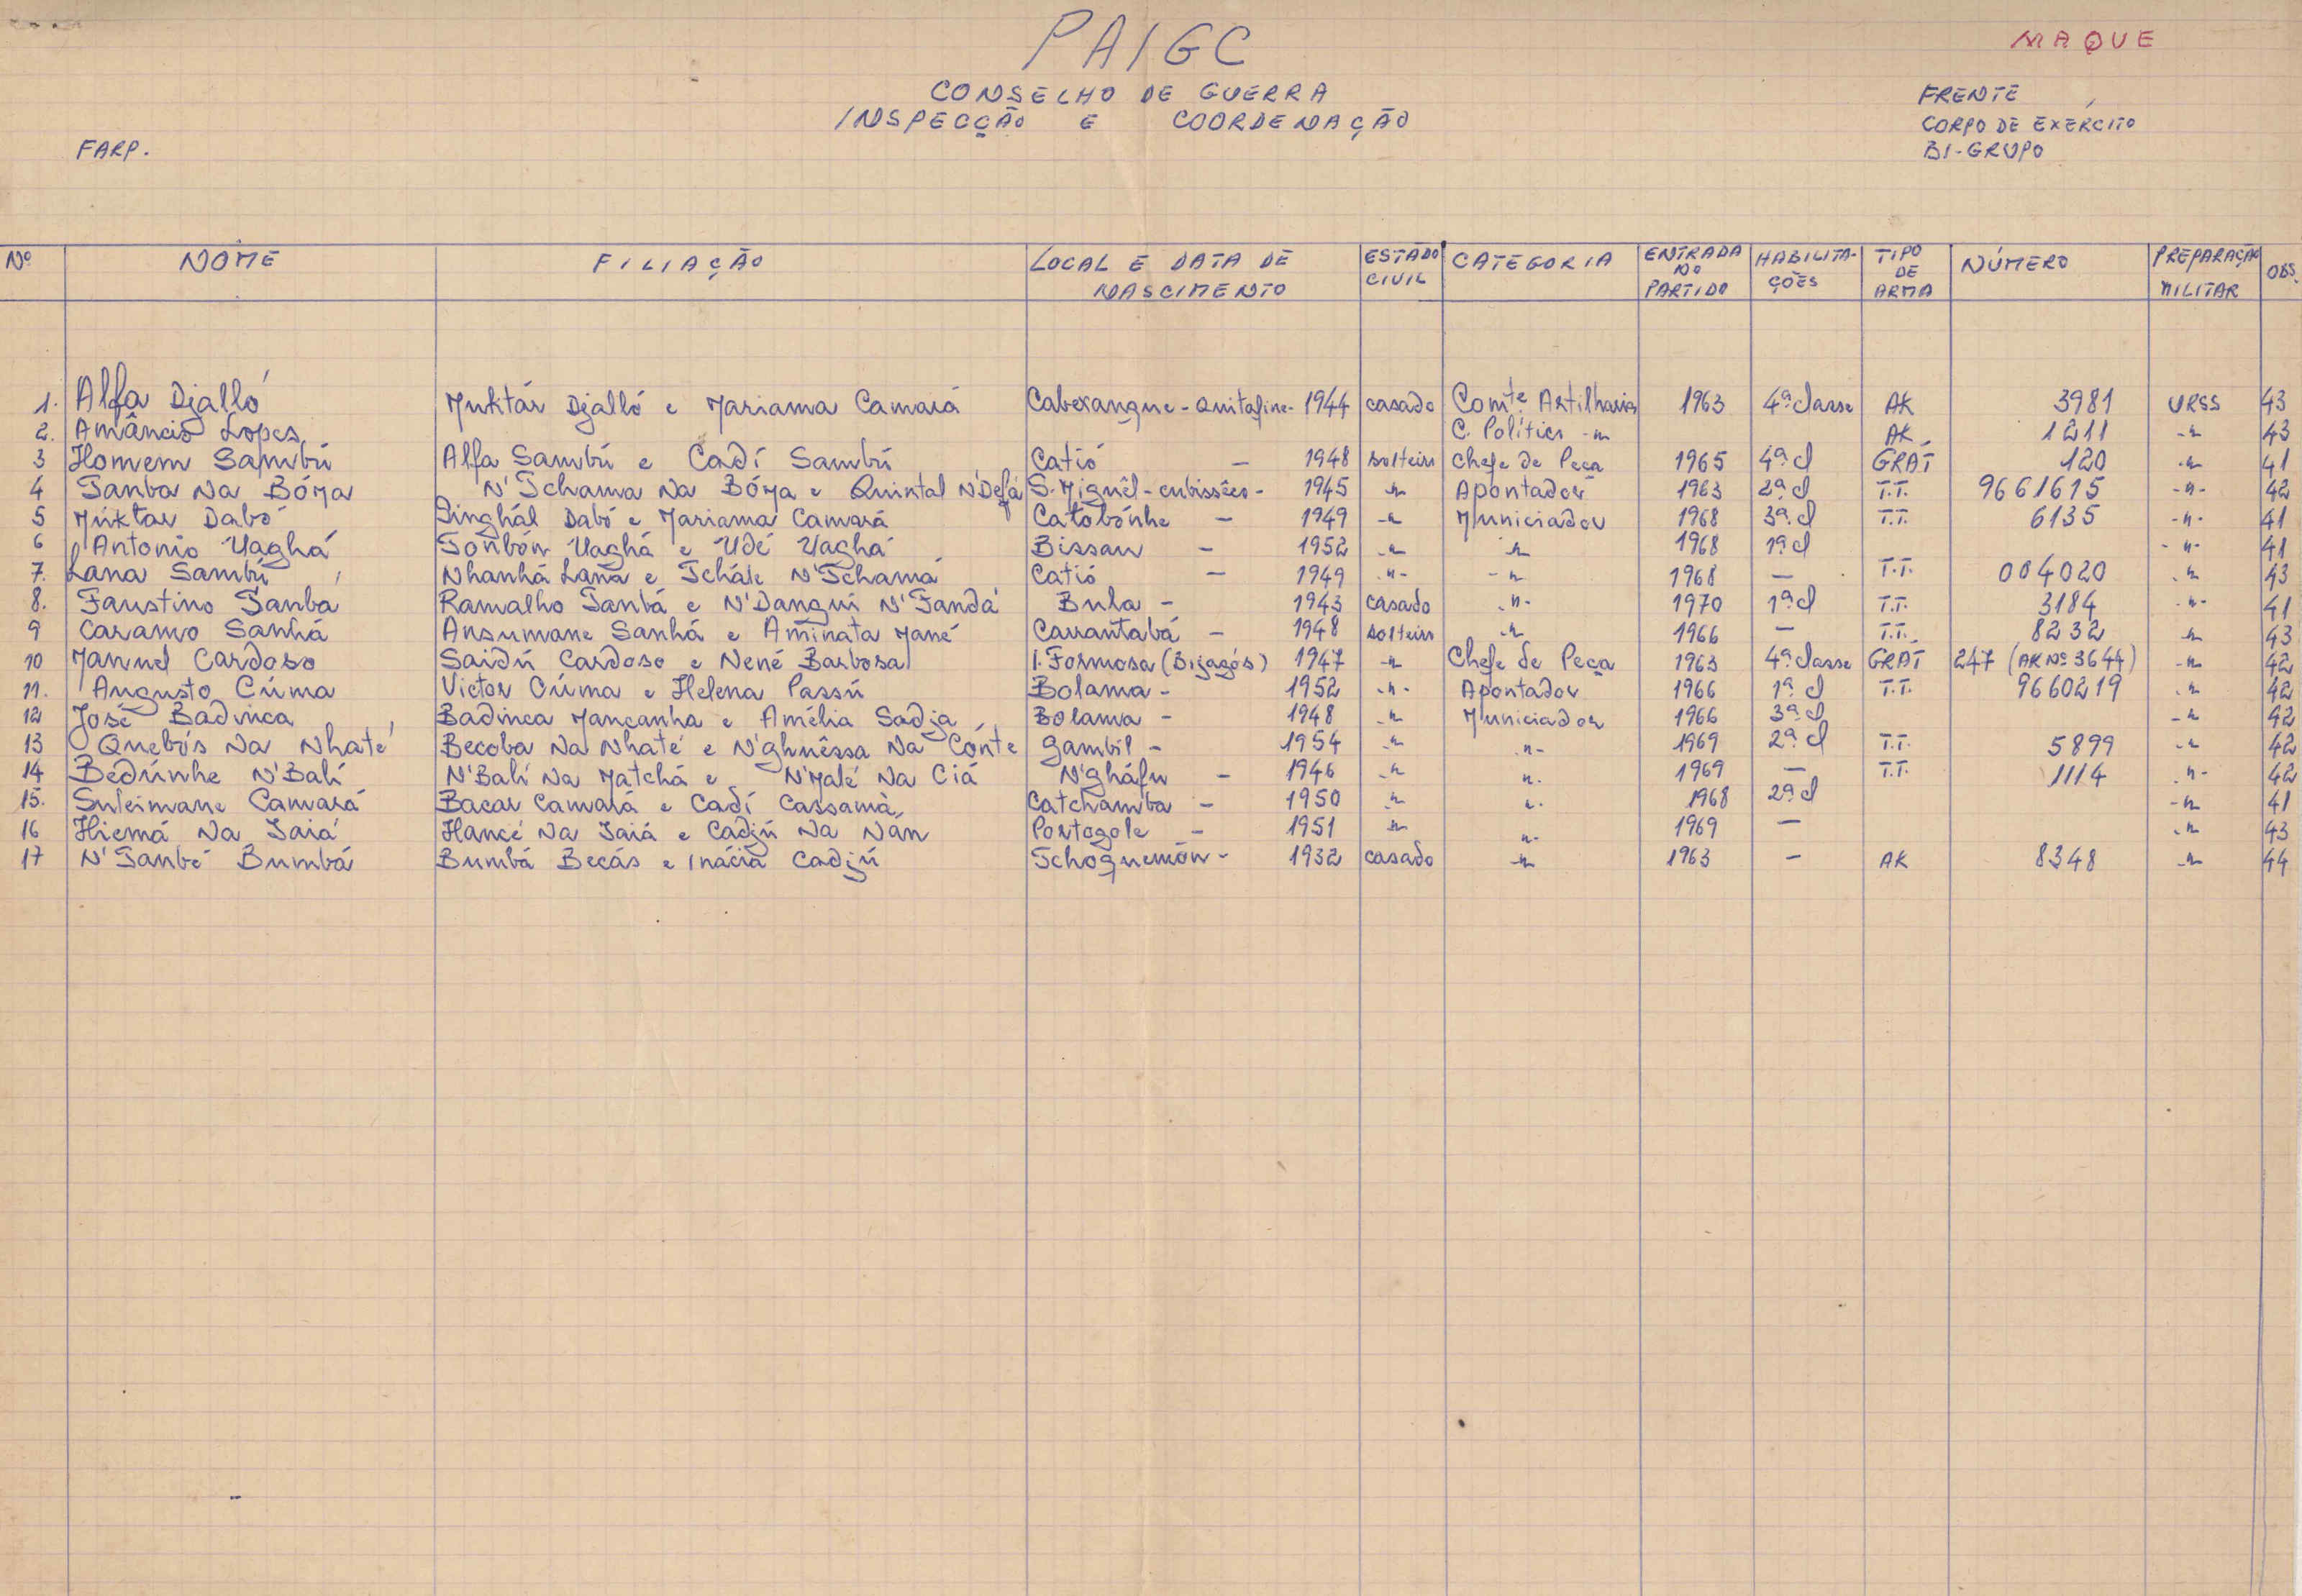 PAIGC
MAQUE
CONSELHO DE GUERRA
INSPECÇÃO E COORDENAÇÃO
FRENTE
CORPO DE EXÉRCITO
BI-GRUPO
FARP.
Nº NOME FILIAÇÃO LOCAL E DATA DE NASCIMENTO ESTADO CIVIL CATEGORIA ENTRADA NO PARTIDO HABILITAÇÕES TIPO DE ARMA NÚMERO PREPARAÇÃO MILITAR OBS.
1. Alfa Djalló Muktár Djalló e Mariama Camará Cabexanque - Quitafine - 1944 casado Comte Artilharia 1963 4ª classe AK 3981 URSS 43
2. Amâncio Lopes C. Político -"- AK 1211 -"- 43
3 Homem Sambú Alfa Sambú e Cadí Sambú Catió - 1948 solteiro Chefe de Peça 1965 4ª cl GRAT 120 -"- 41
4 Tanba Na Bóma N'Tchama Na Bóma e Quintal N'Defá S. Miguêl - cubissêco - 1945 -"- Apontador 1963 2ª cl T.T. 9661615 -"- 42
5 Múktar Dabó Singhál Dabó e Mariama Camará Catobónhe - 1949 -"- Municiador 1968 3ª cl T.T. 6135 -"- 41
6 Antonio Uaghá Tonbón Uaghá e Udé Uaghá Bissau - 1952 -"- -"- 1968 1ª cl -"- 41
7. Lana Sambú Nhanhá Lana e Tchále N'Tchamá Catió - 1949 -"- -"- 1968 - T.T. 004020 -"- 43
8. Faustino Tanba Ramalho Tanbá e N'Dangui N'Fanda Bula - 1943 casado -"- 1970 1ª cl T.T. 3184 -"- 41
9 Caramo Sanhá Ansumane Sanhá e Aminata Mané Carantabá - 1948 solteiro -"- 1966 - T.T. 8232 -"- 43
10 Manuel Cardoso Saidú Cardoso e Nené Barbosa I. Formosa (Bijagós) 1947 -"- Chefe de Peça 1963 4ª classe GRAT 247 (AK Nº 3644) -"- 42
11. Augusto Cúma Victor Cúma e Helena Passú Bolama - 1952 -"- Apontador 1966 1ª cl T.T. 9660219 -"- 42
12 José Badinca Badinca Mancanha e Amélia Sadja Bolama - 1948 -"- Municiador 1966 3ª cl -"- 42
13 Quebós Na Nhaté Becoba Na Nhaté e N'ghuêssa Na Cónte Gambil - 1954 -"- -"- 1969 2ª cl T.T. 5899 -"- 42
14 Bedúnhe N'Balí N'Balí Na Matchá e N'Malé Na Ciá N'gháfu - 1946 -"- ". 1969 - T.T. 1114 -"- 42
15. Suleimane Camará Bacar Camará e Cadí Cassamà Catchamba - 1950 -"- ". 1968 2ª cl -"- 41
16 Hiemá Na Iaiá Hancé Na Iaiá e Cadjú Na Nán Portogole - 1951 -"- "- 1969 - -"- 43
17 N'Tanbé Bumbá Bumbá Beçás e Inácia Cadjú Tchoquemón - 1932 casado -"- 1963 - AK 8348 -"- 44